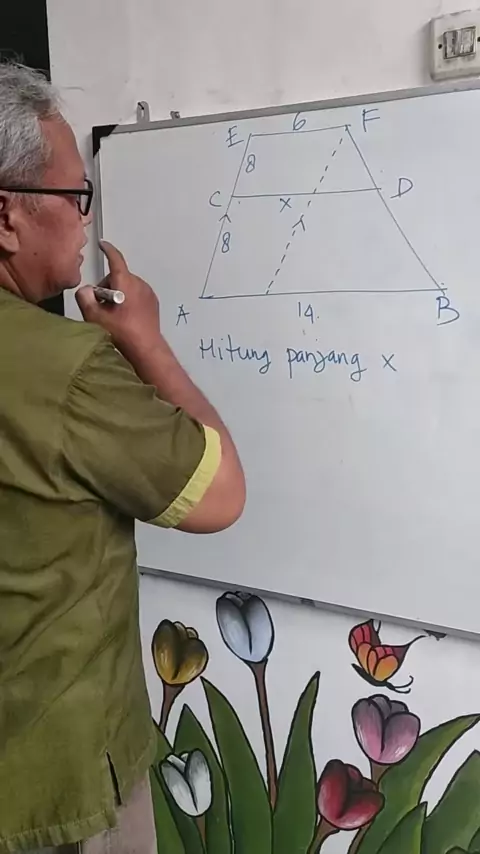 E 6 F
8
C x D
8
A 14 B
Hitung panjang x